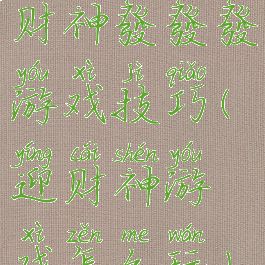 财神發發發
yóu xì jì qiǎo
游戏技巧(
yíng cái shén yóu
迎财神游
xì zěn me wán
戏怎么玩)